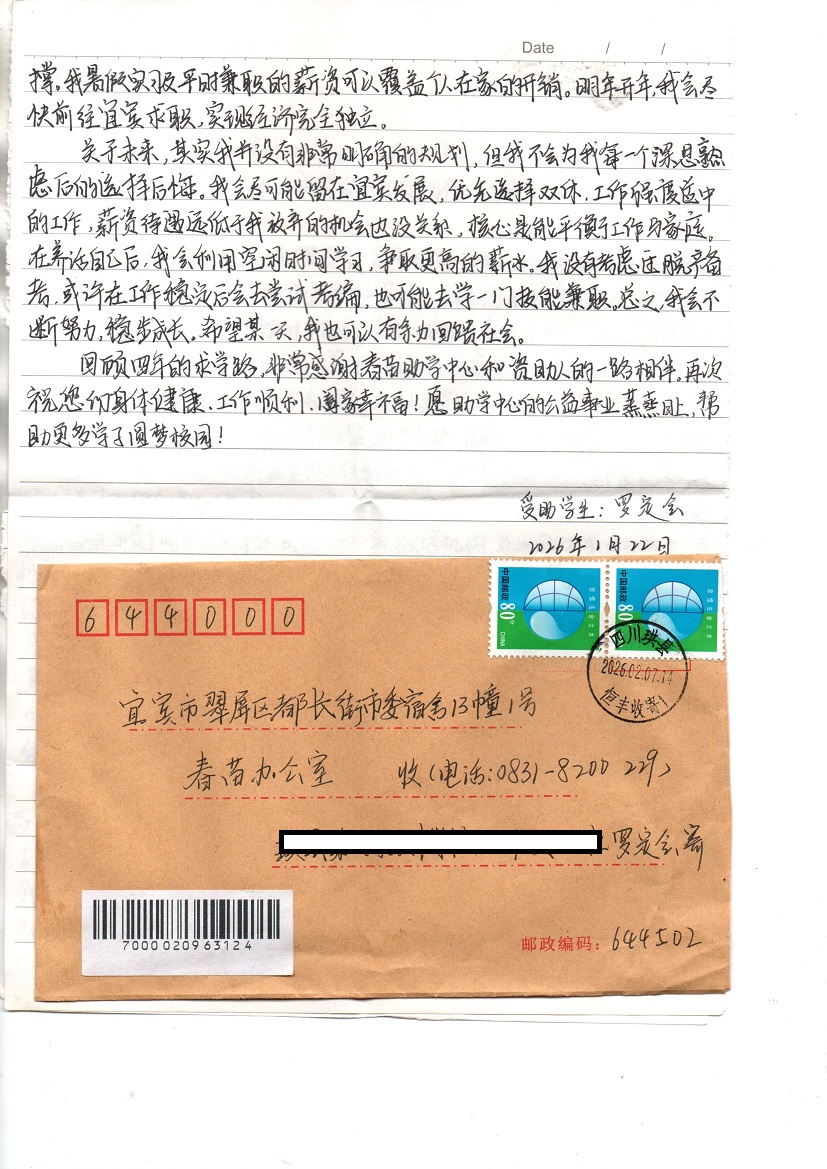 Date / /
撑。我暑假实习及平时兼职的薪资可以覆盖个人在家的开销。明年开年,我会尽
快前往宜宾求职,实现经济完全独立。
关于未来,其实我并没有非常明确的规划,但我不会为我每一个深思熟
虑后的选择后悔。我会尽可能留在宜宾发展,优先选择双休、工作强度适中
的工作,薪资待遇远低于我放弃的机会也没关系,核心是能平衡工作与家庭。
在养活自己后,我会利用空闲时间学习,争取更高的薪水。我没有考虑过脱产备
考,或许在工作稳定后会去尝试考编,也可能去学一门技能兼职。总之,我会不
断努力,稳步成长。希望某一天,我也可以有余力回馈社会。
回顾四年的求学路,非常感谢春苗助学中心和资助人的一路相伴。再次
祝您们身体健康、工作顺利、阖家幸福!愿助学中心的公益事业蒸蒸日上,帮
助更多学子圆梦校园!
受助学生:罗定会
2026年1月22日
中国邮政
80分
CHINA
珍惜生命之水
中国邮政
80
珍惜生命之水
四川珙县
2026.02.07.14
恒丰收寄1
644000
宜宾市翠屏区都长街市委宿舍13幢1号
春苗办公室 收(电话:0831-8200 229)
罗定会寄
7000020963124
邮政编码:644502